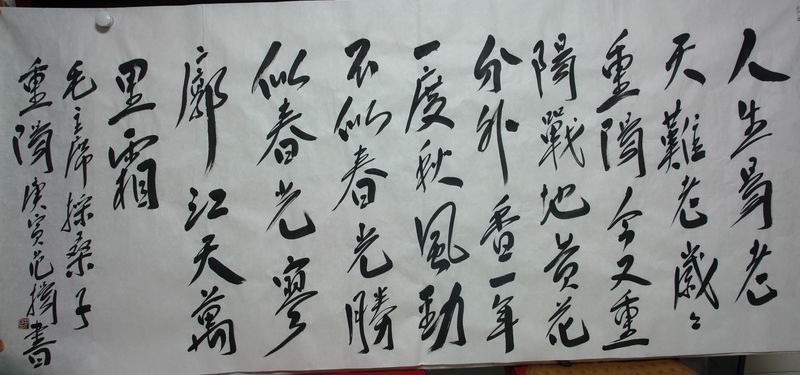 人生易老
天難老歲々
重陽今又重
陽戰地黃花
分外香一年
一度秋風勁
不似春光勝
似春光寥
廓江天萬
里霜
毛主席採桑子
重陽庚寅范書